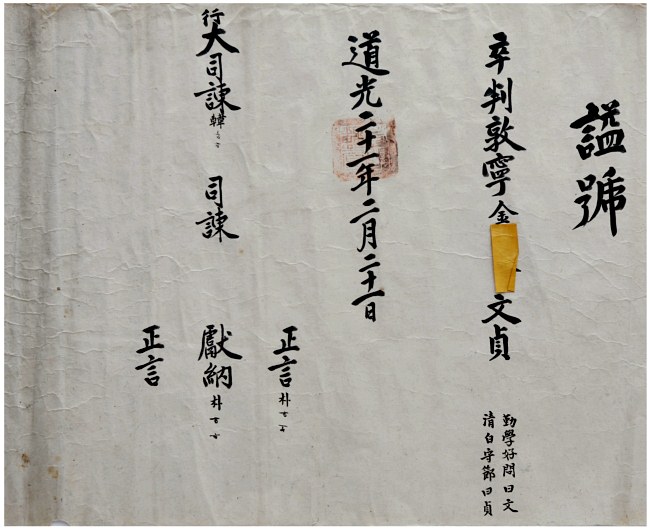 諡號
卒判敦寧金 文貞
勤學好問曰文
清白守節曰貞
道光二十一年二月二十一日
正言 朴
行大司諫 韓
司諫
獻納 朴
正言